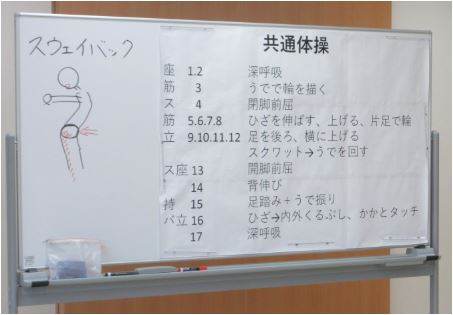 スウェイバック
共通体操
座 1.2 深呼吸
筋 3 うでで輪を描く
ス 4 閉脚前屈
筋 5.6.7.8 ひざを伸ばす、上げる、片足で輪
立 9.10.11.12 足を後ろ、横に上げる
スクワット→うでを回す
ス座 13 開脚前屈
14 背伸び
持 15 足踏み+うで振り
バ立 16 ひざ→内外くるぶし、かかとタッチ
17 深呼吸